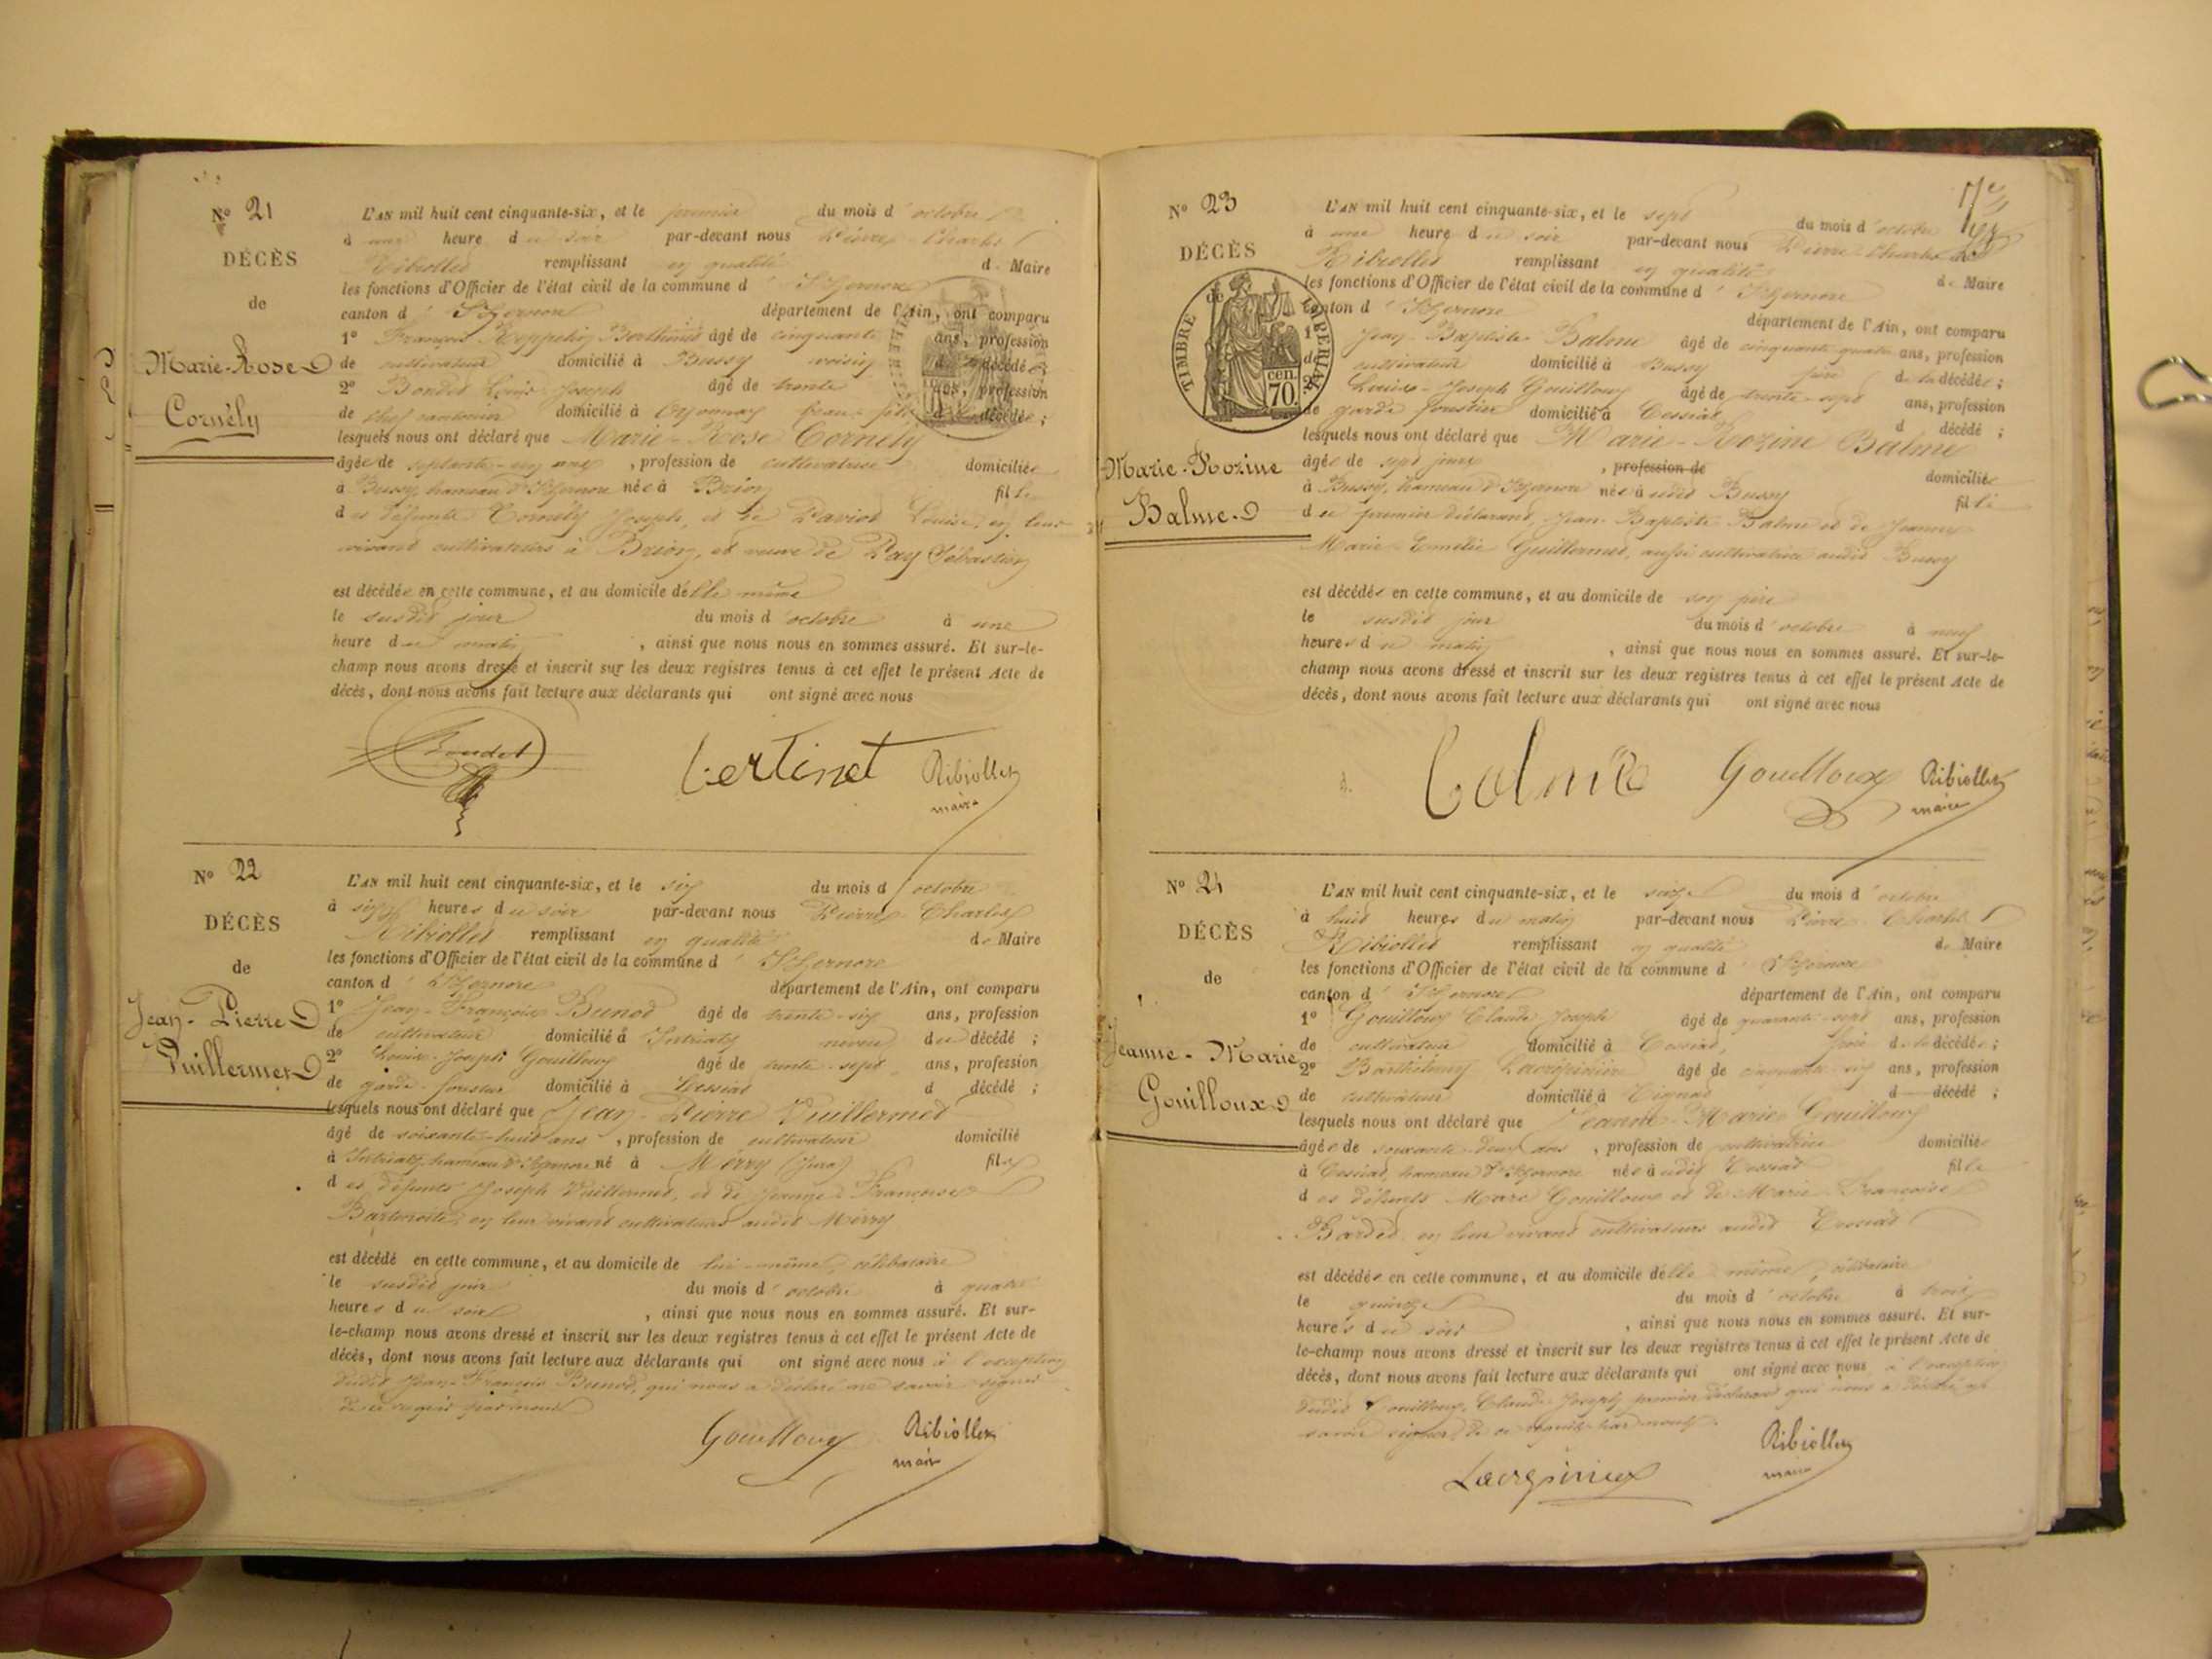 No 21
DÉCÈS
de
Marie-Rose
Cornély
L'AN mil huit cent cinquante-six, et le premier du mois d'octobre
à une heure du soir par-devant nous Pierre-Charles
Ribiollet remplissant en qualité de Maire
les fonctions d'Officier de l'état civil de la commune d'Izernore
canton d'Izernore département de l'Ain, ont comparu
1o François âgé de cinquante ans, profession
de cultivateur domicilié à Bussy voisin de la décédée
2o Bondet Louis-Joseph âgé de trente ans, profession
de chef cantonnier domicilié à Oyonnax beau-fils de la décédée ;
lesquels nous ont déclaré que Marie-Rose Cornély
âgée de septante-un ans, profession de cultivatrice domiciliée
à Bussy, hameau d'Izernore née à Brion fille
des défunts Cornély Joseph, et de Paviot Louise, en leur
vivant cultivateurs à Brion, et veuve de Pay Sébastien
est décédée en cette commune, et au domicile d'elle même
le susdit jour du mois d'octobre à une
heure du matin, ainsi que nous nous en sommes assuré. Et sur-le-
champ nous avons dressé et inscrit sur les deux registres tenus à cet effet le présent Acte de
décès, dont nous avons fait lecture aux déclarants qui ont signé avec nous
Bondet Bertinet Ribiollet
maire
No 22
DÉCÈS
de
Jean-Pierre
Vuillermet
L'AN mil huit cent cinquante-six, et le six du mois d'octobre
à six heures du soir par-devant nous Pierre-Charles
Ribiollet remplissant en qualité de Maire
les fonctions d'Officier de l'état civil de la commune d'Izernore
canton d'Izernore département de l'Ain, ont comparu
1o Jean-François Bunod âgé de trente-six ans, profession
de cultivateur domicilié à Intriat neveu du décédé ;
2o Louis-Joseph Gouilloux âgé de trente-sept ans, profession
de garde-forestier domicilié à Cessiat d décédé ;
lesquels nous ont déclaré que Jean-Pierre Vuillermet
âgé de soixante-huit ans, profession de cultivateur domicilié
à Intriat, hameau d'Izernore né à Mérry (Jura) fils
des défunts Joseph Vuillermet, et de Jeanne Françoise
en leur vivant cultivateurs audit Mérry
est décédé en cette commune, et au domicile de lui-même, célibataire
le susdit jour du mois d'octobre à quatre
heures du soir, ainsi que nous nous en sommes assuré. Et sur-
le-champ nous avons dressé et inscrit sur les deux registres tenus à cet effet le présent Acte de
décès, dont nous avons fait lecture aux déclarants qui ont signé avec nous à l'exception
dudit Jean-François Bunod, qui nous a déclaré ne savoir signer
de ce requis par nous
Gouilloux Ribiollet
maire
17e
No 23
DÉCÈS
de
TIMBRE IMPERIAL
70 cen.
Marie-Rozine
Balme
L'AN mil huit cent cinquante-six, et le sept du mois d'octobre
à une heure du soir par-devant nous Pierre-Charles
Ribiollet remplissant en qualité de Maire
les fonctions d'Officier de l'état civil de la commune d'Izernore
canton d'Izernore département de l'Ain, ont comparu
1o Jean-Baptiste Balme âgé de cinquante-quatre ans, profession
de cultivateur domicilié à Bussy père de la décédée ;
2o Louis-Joseph Gouilloux âgé de trente-sept ans, profession
de garde forestier domicilié à Cessiat d décédé ;
lesquels nous ont déclaré que Marie-Rozine Balme
âgée de sept jours, profession de domiciliée
à Bussy, hameau d'Izernore née audit Bussy fille
du premier déclarant, Jean-Baptiste Balme et de Jeanne
Marie-Emélie Guillermet, aussi cultivatrice audit Bussy
est décédée en cette commune, et au domicile de son père
le susdit jour du mois d'octobre à neuf
heures du matin, ainsi que nous nous en sommes assuré. Et sur-le-
champ nous avons dressé et inscrit sur les deux registres tenus à cet effet le présent Acte de
décès, dont nous avons fait lecture aux déclarants qui ont signé avec nous
Balme Gouilloux Ribiollet
maire
No 24
DÉCÈS
de
Jeanne-Marie
Gouilloux
L'AN mil huit cent cinquante-six, et le seize du mois d'octobre
à huit heures du matin par-devant nous Pierre-Charles
Ribiollet remplissant en qualité de Maire
les fonctions d'Officier de l'état civil de la commune d'Izernore
canton d'Izernore département de l'Ain, ont comparu
1o Gouilloux Claude Joseph âgé de quarante-sept ans, profession
de cultivateur domicilié à Cessiat, frère de la décédée ;
2o Barthélemy âgé de cinquante-six ans, profession
de cultivateur domicilié à Tignat d décédé ;
lesquels nous ont déclaré que Jeanne-Marie Gouilloux
âgée de soixante-deux ans, profession de cultivatrice domiciliée
à Cessiat, hameau d'Izernore née audit Cessiat fille
des défunts Marc Gouilloux et de Marie Françoise
Bardet en leur vivant cultivateurs audit Cessiat
est décédée en cette commune, et au domicile d'elle même, célibataire
le quinze du mois d'octobre à trois
heures du soir, ainsi que nous nous en sommes assuré. Et sur-
le-champ nous avons dressé et inscrit sur les deux registres tenus à cet effet le présent Acte de
décès, dont nous avons fait lecture aux déclarants qui ont signé avec nous à l'exception
dudit Gouilloux, Claude Joseph premier déclarant qui nous a déclaré ne
savoir signer, de ce requis par nous.
Ribiollet
maire